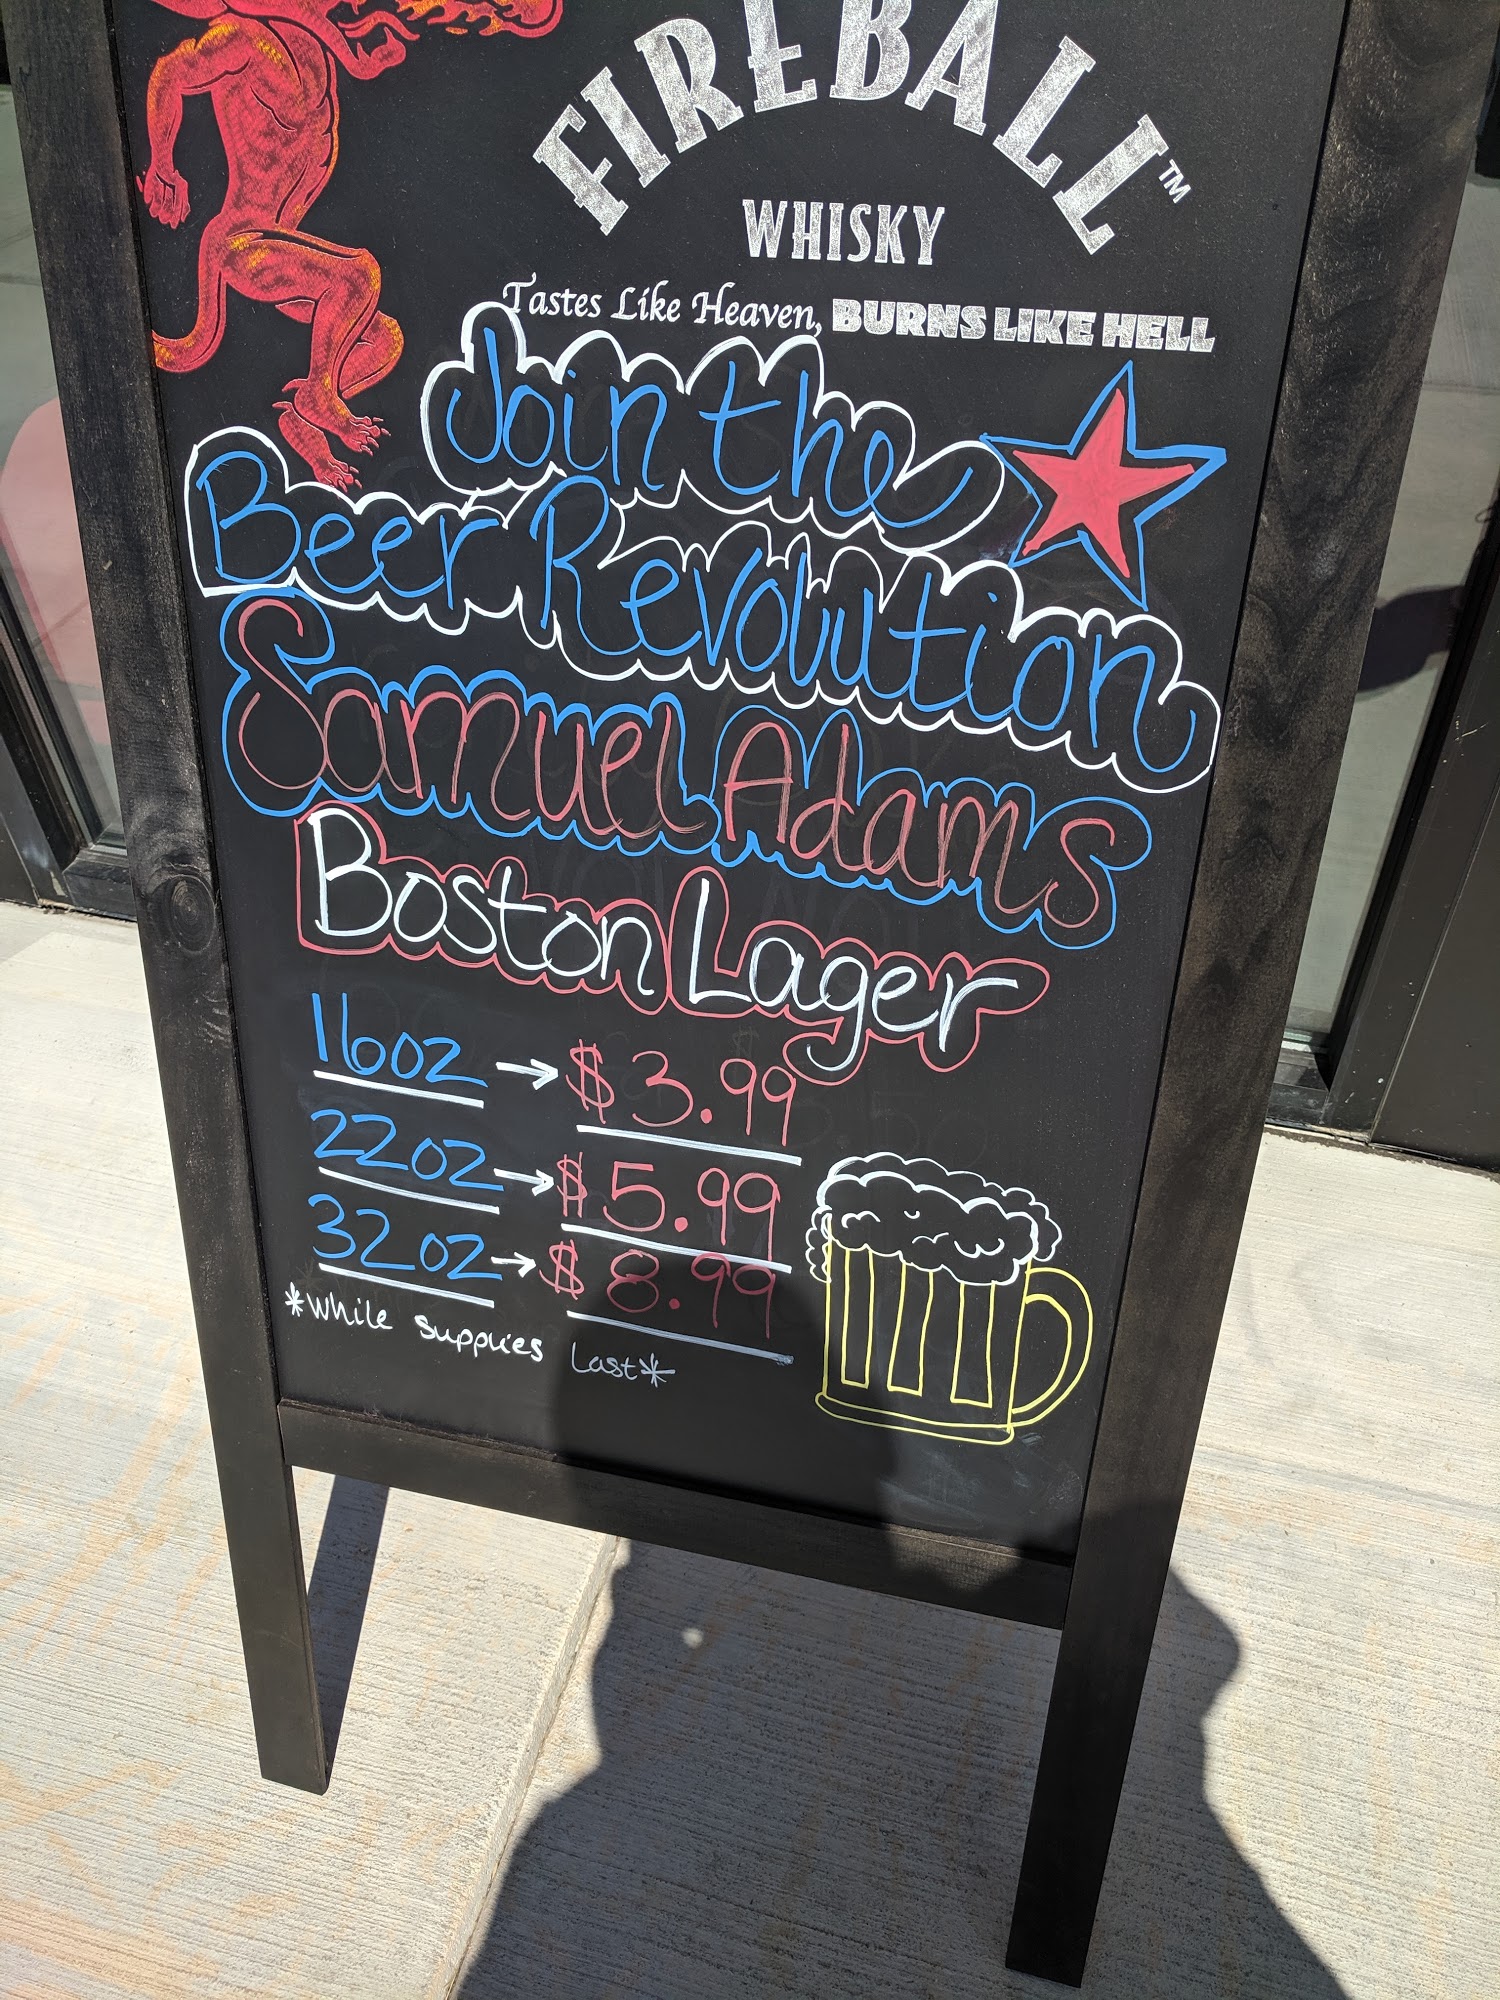 FIREBALL™
WHISKY
Tastes Like Heaven, BURNS LIKE HELL
Join the
Beer Revolution
Samuel Adams
Boston Lager
16oz → $3.99
22oz → $5.99
32oz → $8.99
*While Supplies Last*